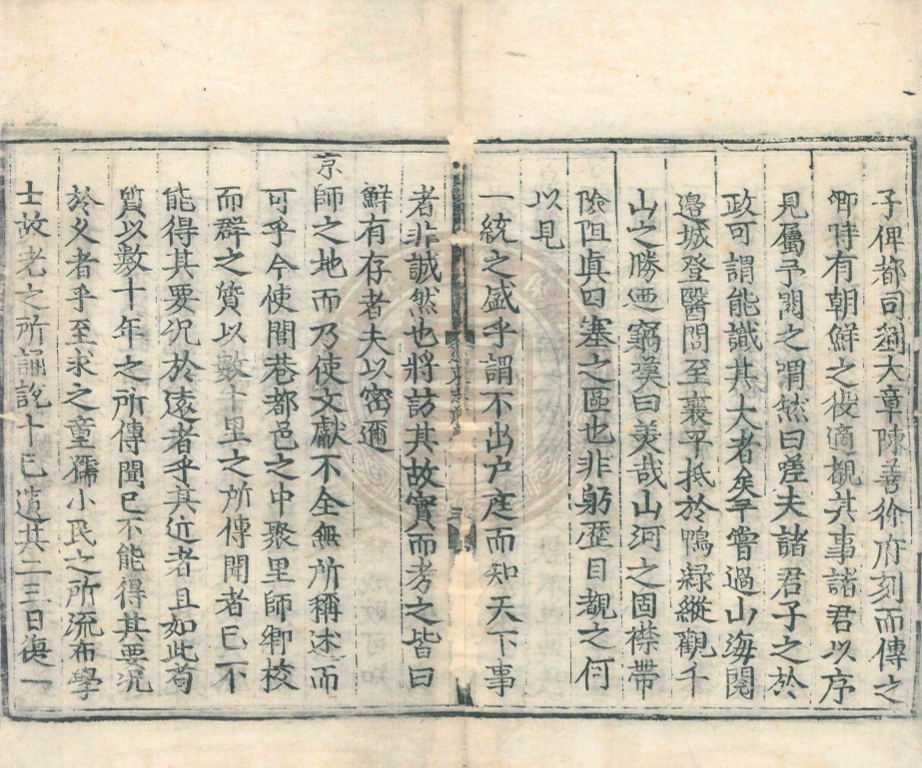 子俾都司劉大章陳善徐府刻而傳之
卿時有朝鮮之役適觀其事諸君以序
見屬予閱之喟然曰嗟夫諸君子之於
政可謂能識其大者矣予嘗過山海閱
邊城登醫閭至襄平抵於鴨淥縱觀千
山之勝迺竊嘆曰美哉山河之固襟帶
險阻真四塞之區也非躬歷目覩之何
以見
一統之盛乎謂不出户庭而知天下事
者非誠然也將訪其故實而考之皆曰
鮮有存者夫以密邇
京師之地而乃使文獻不全無所稱述而
可乎今使閭巷都邑之中聚里師鄉校
而群之質以數十里之所傳聞者已不
能得其要况於遠者乎其近者且如此苟
質以數十年之所傳聞已不能得其要况
於久者乎至求之童孺小民之所流布學
士故老之所誦說十已遺其二三日復一